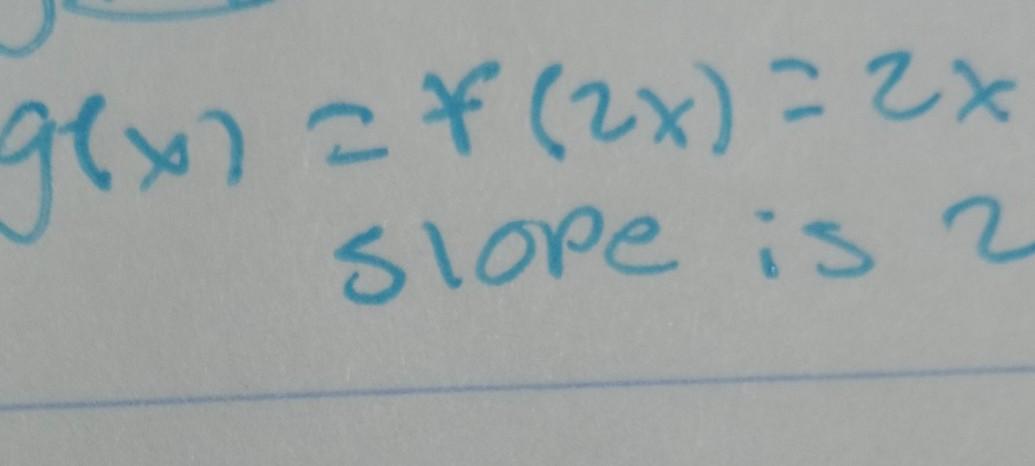 g(x) = f(2x) = 2x
slope is 2